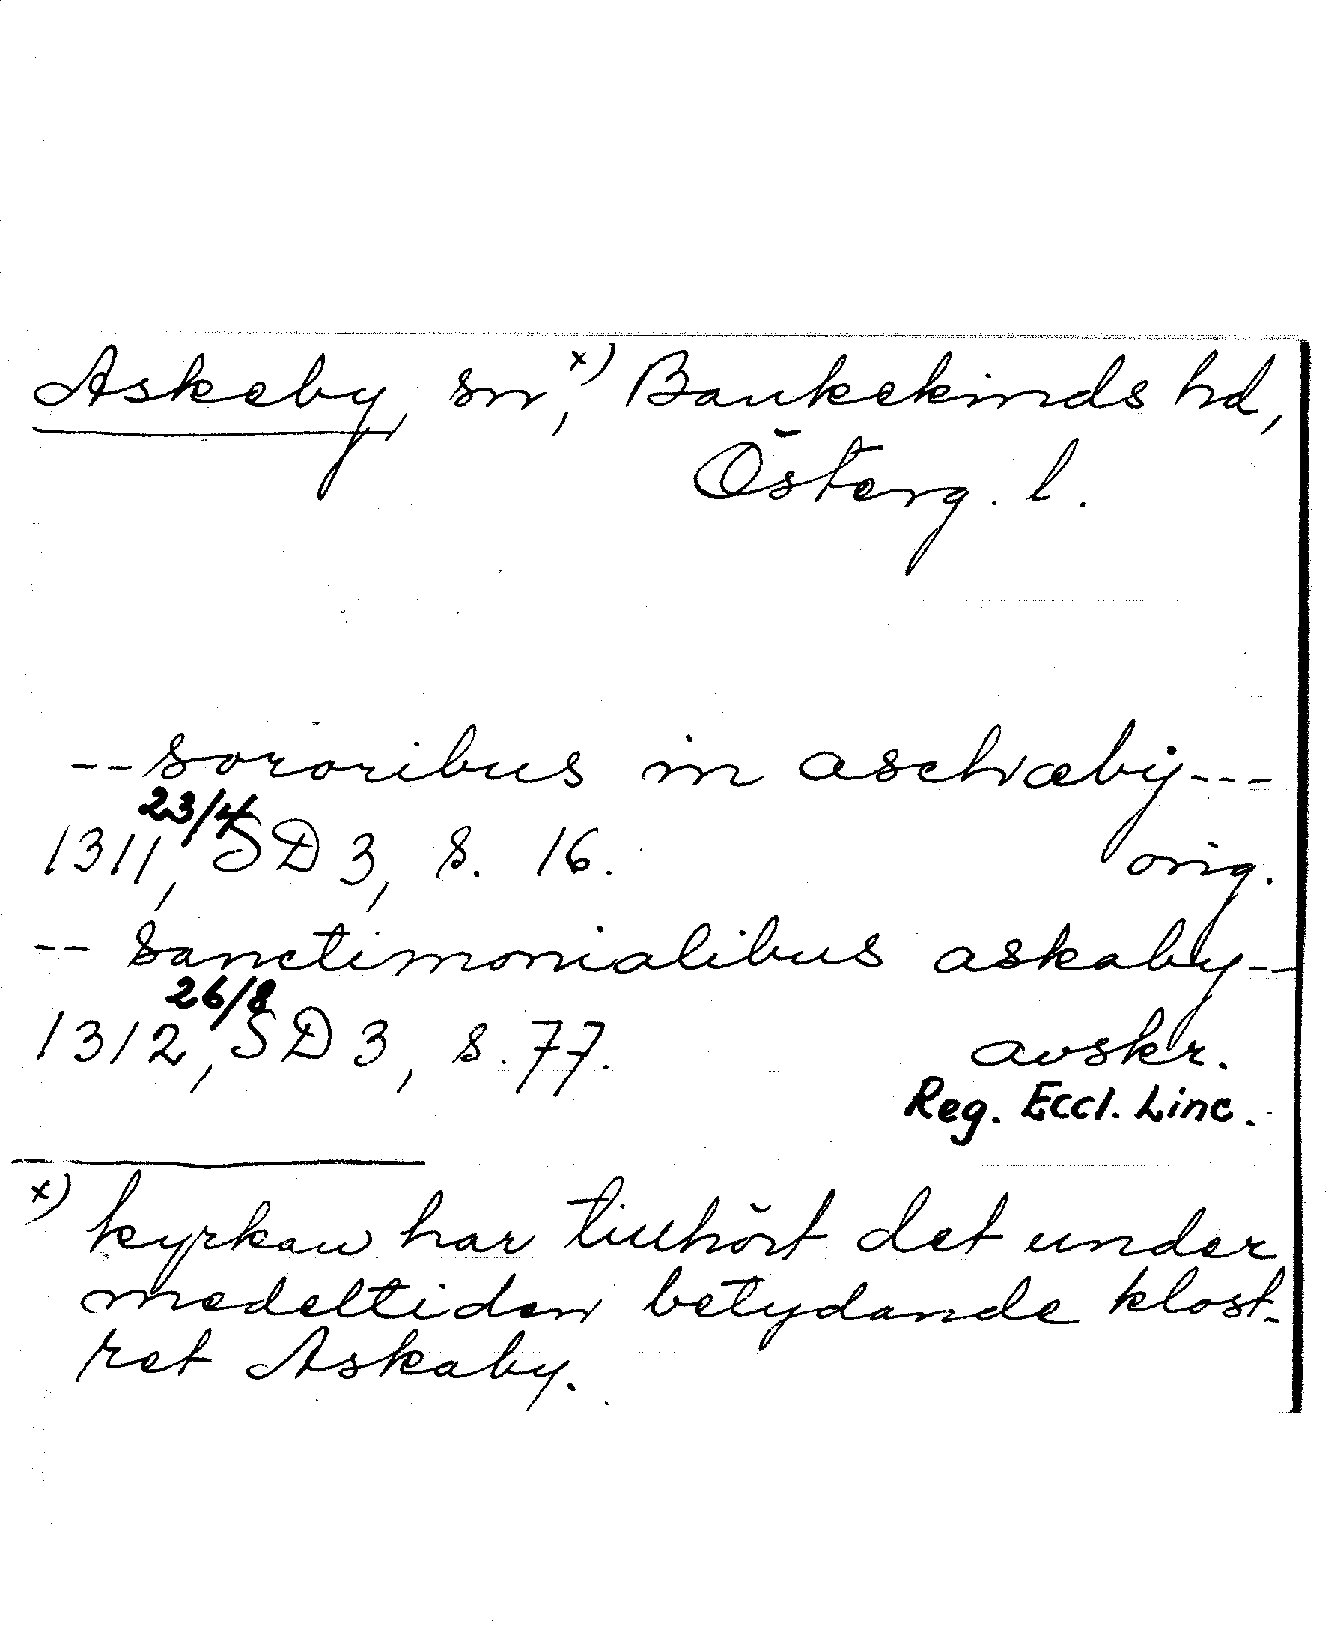 Askeby, sn,x) Bankekinds hd,
Österg. l.
-- sororibus in aschæby---
23/4
1311, SD 3, s. 16. orig.
-- sanctimonialibus askaby--
26/8
1312, SD 3, s. 77. avskr.
Reg. Eccl. Linc.
x) kyrkan har tillhört det under
medeltiden betydande klost-
ret Askaby.